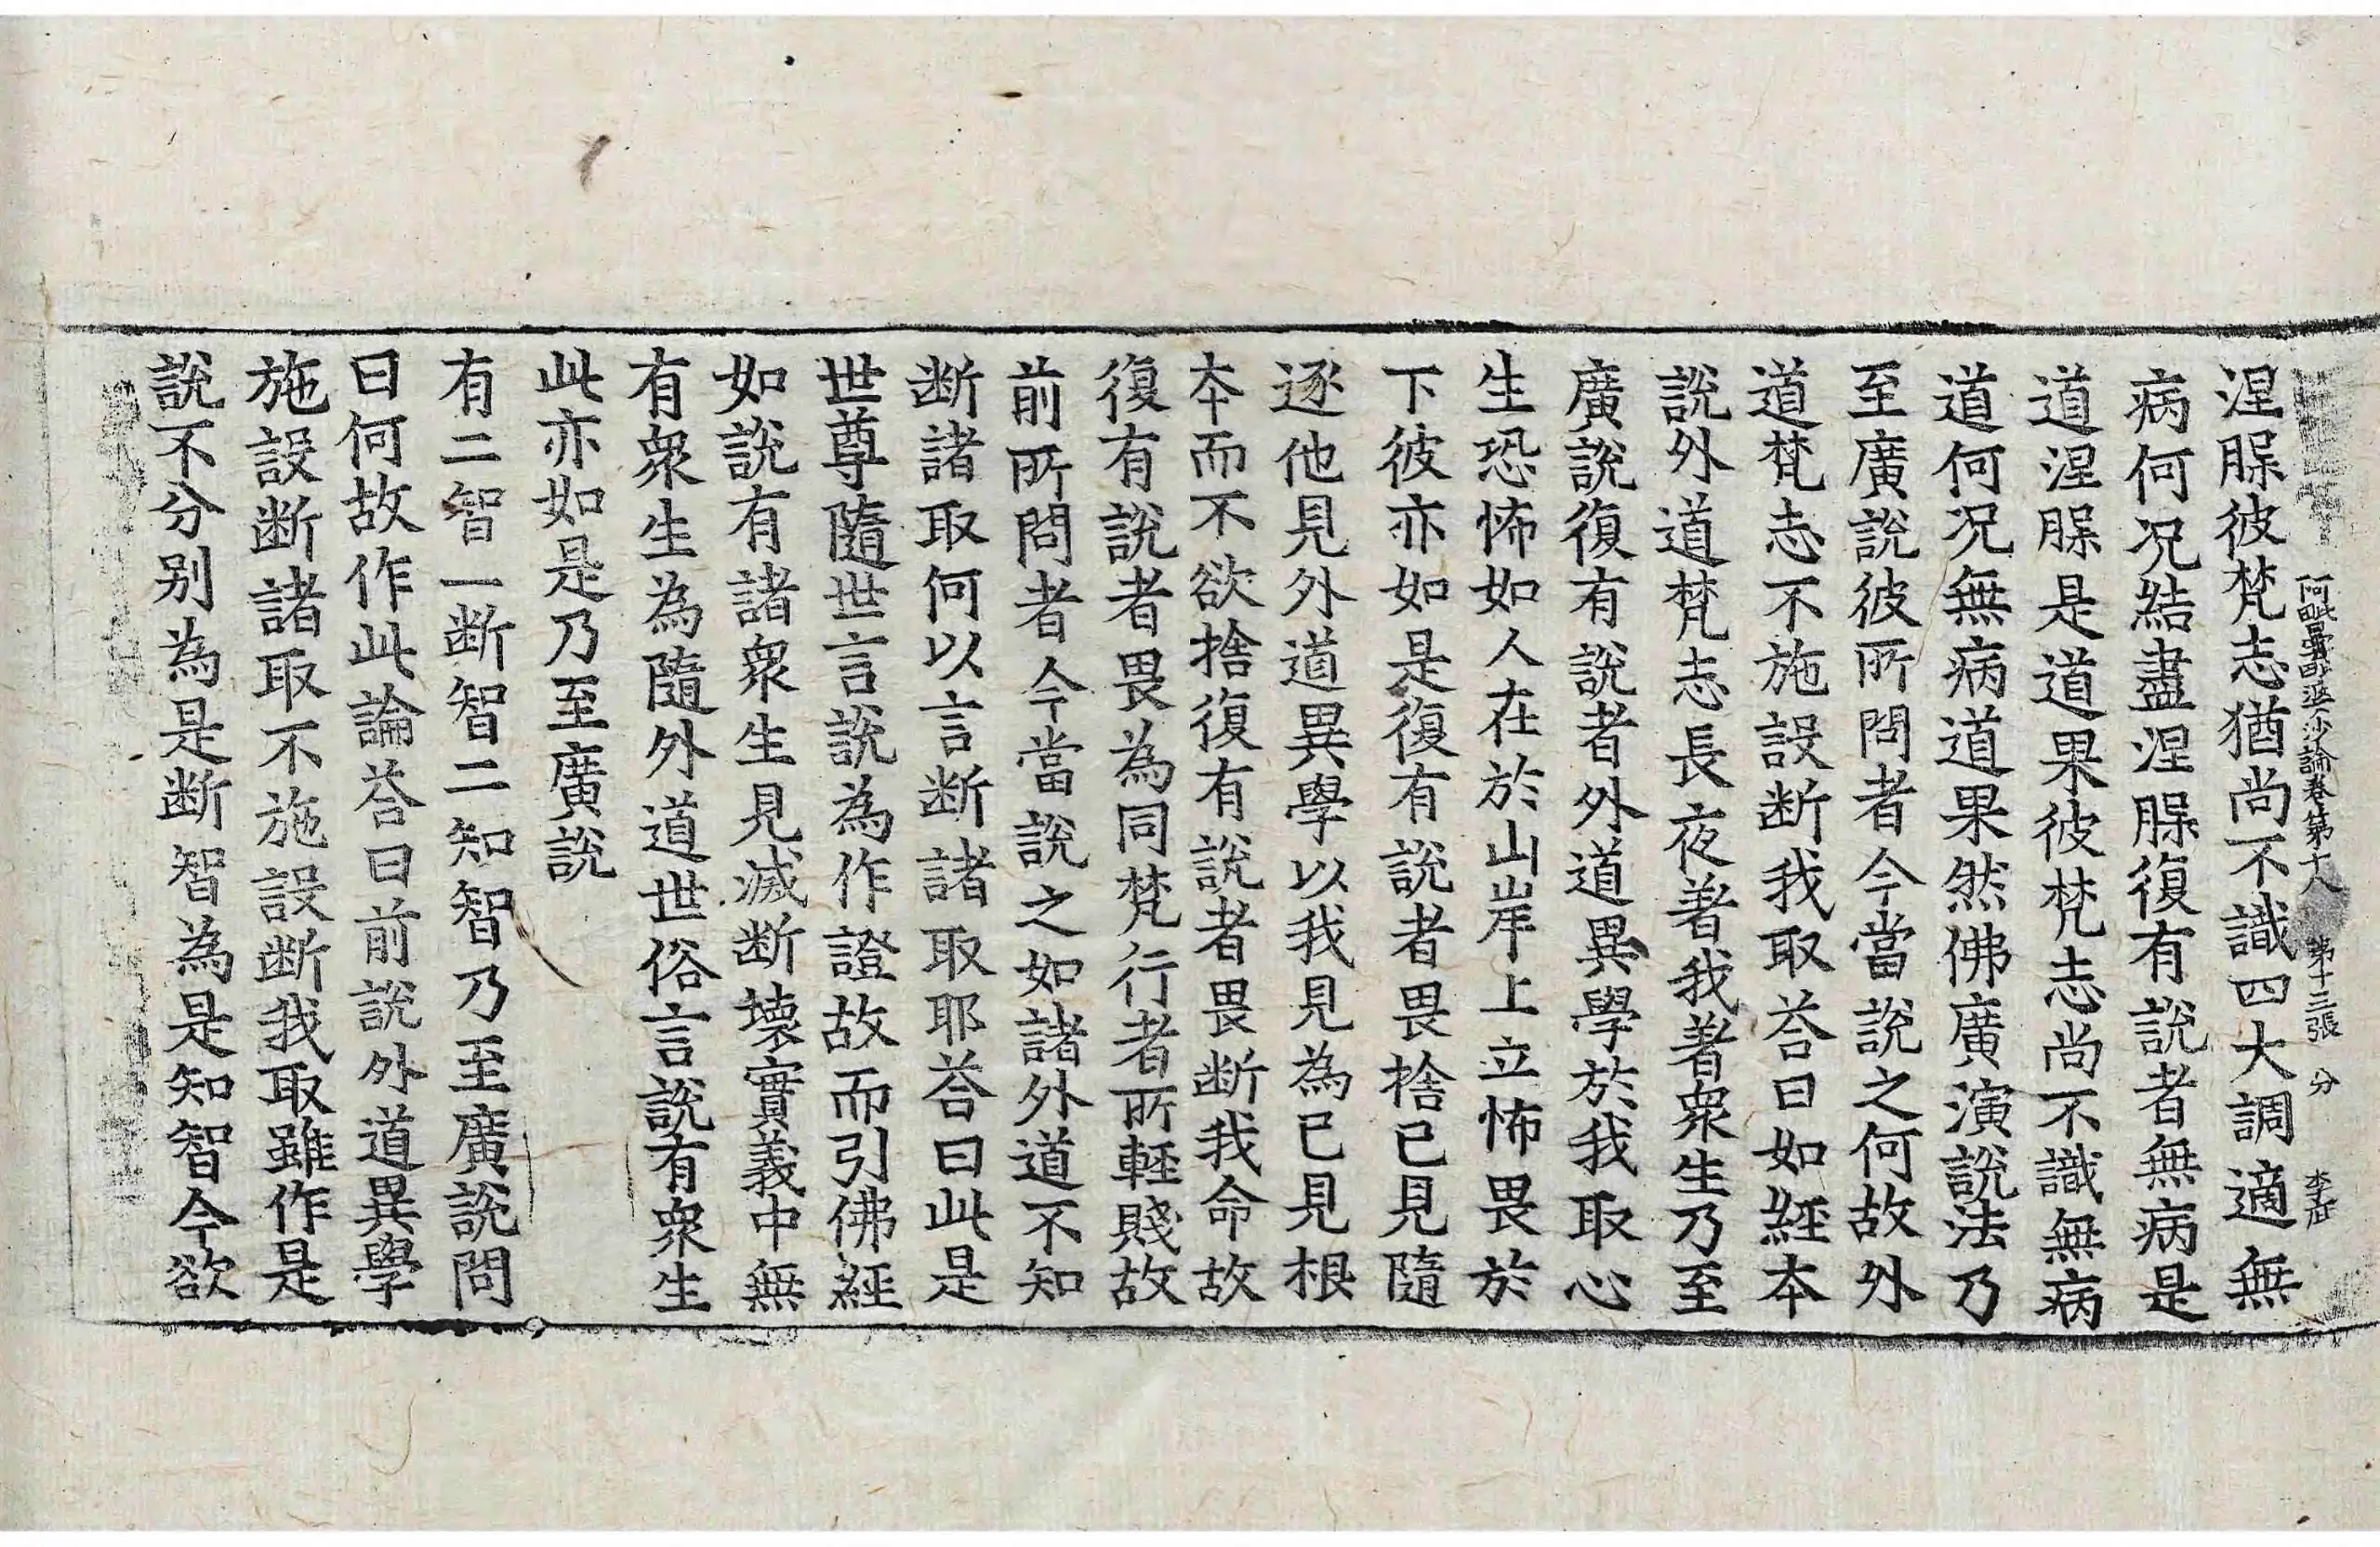 阿毗曇毗婆沙論卷第十八　第十三張　分　李正
涅脲彼梵志猶尚不識四大調適無
病何况結盡涅脲復有說者無病是
道涅脲是道果彼梵志尚不識無病
道何况無病道果然佛廣演說法乃
至廣說彼所問者今當說之何故外
道梵志不施設断我取荅曰如經本
說外道梵志長夜著我著衆生乃至
廣說復有說者外道異學於我取心
生恐怖如人在於山岸上立怖畏於
下彼亦如是復有說者畏捨已見隨
逐他見外道異學以我見為已見根
本而不欲捨復有說者畏断我命故
復有說者畏為同梵行者所輕賤故
前所問者今當說之如諸外道不知
断諸取何以言断諸取耶荅曰此是
世尊隨世言說為作證故而引佛經
如說有諸衆生見滅断壊實義中無
有衆生為隨外道世俗言說有衆生
此亦如是乃至廣說
有二智一断智二知智乃至廣說問
曰何故作此論荅曰前說外道異學
施設断諸取不施設断我取雖作是
說不分别為是断智為是知智今欲